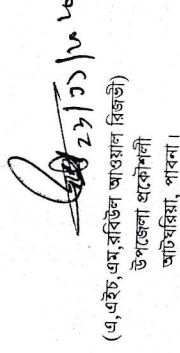 ২৩/১১/২০২৫
(এ,এইচ,এম,রবিউল আওয়াল রিজভী)
উপজেলা প্রকৌশলী
আটঘরিয়া, পাবনা।